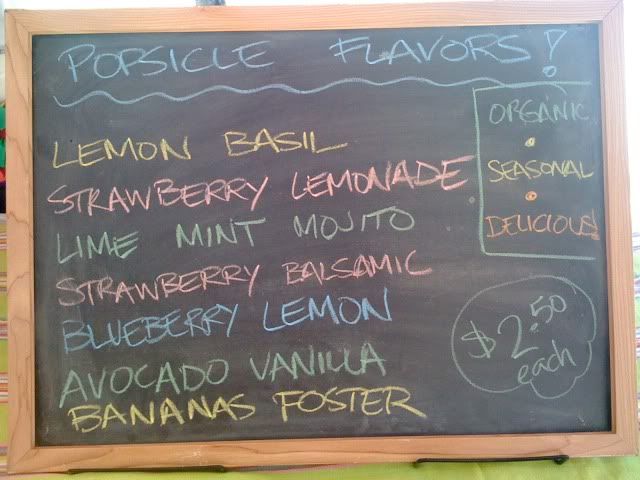 POPSICLE FLAVORS!
LEMON BASIL
STRAWBERRY LEMONADE
LIME MINT MOJITO
STRAWBERRY BALSAMIC
BLUEBERRY LEMON
AVOCADO VANILLA
BANANAS FOSTER
ORGANIC
•
SEASONAL
•
DELICIOUS!
$2.50
each